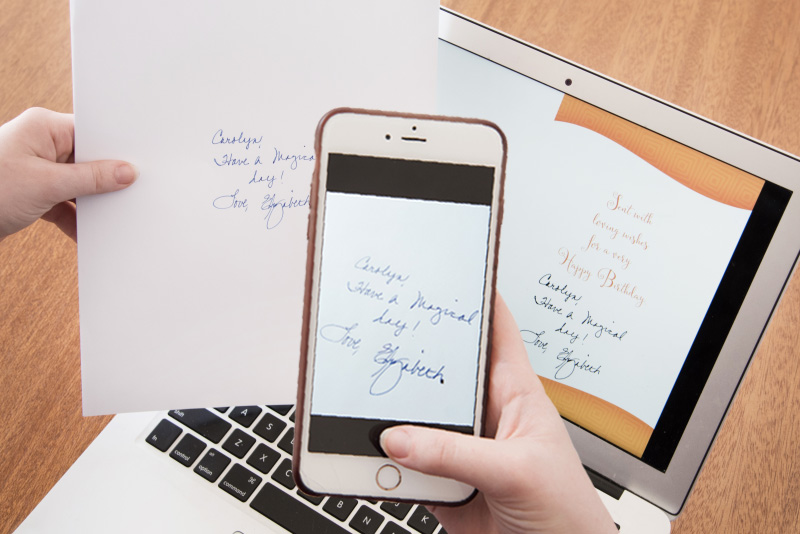 Carolyn,
Have a Magica
day!
Love, Elizabeth
Carolyn,
Have a Magical
day!
Love, Elizabeth
Sent with
loving wishes
for a very
Happy Birthday
Carolyn,
Have a Magical
day!
Love, Elizabeth
shift
A
S
Z
X
fn
control
option
⌘
command
B
N
M
K